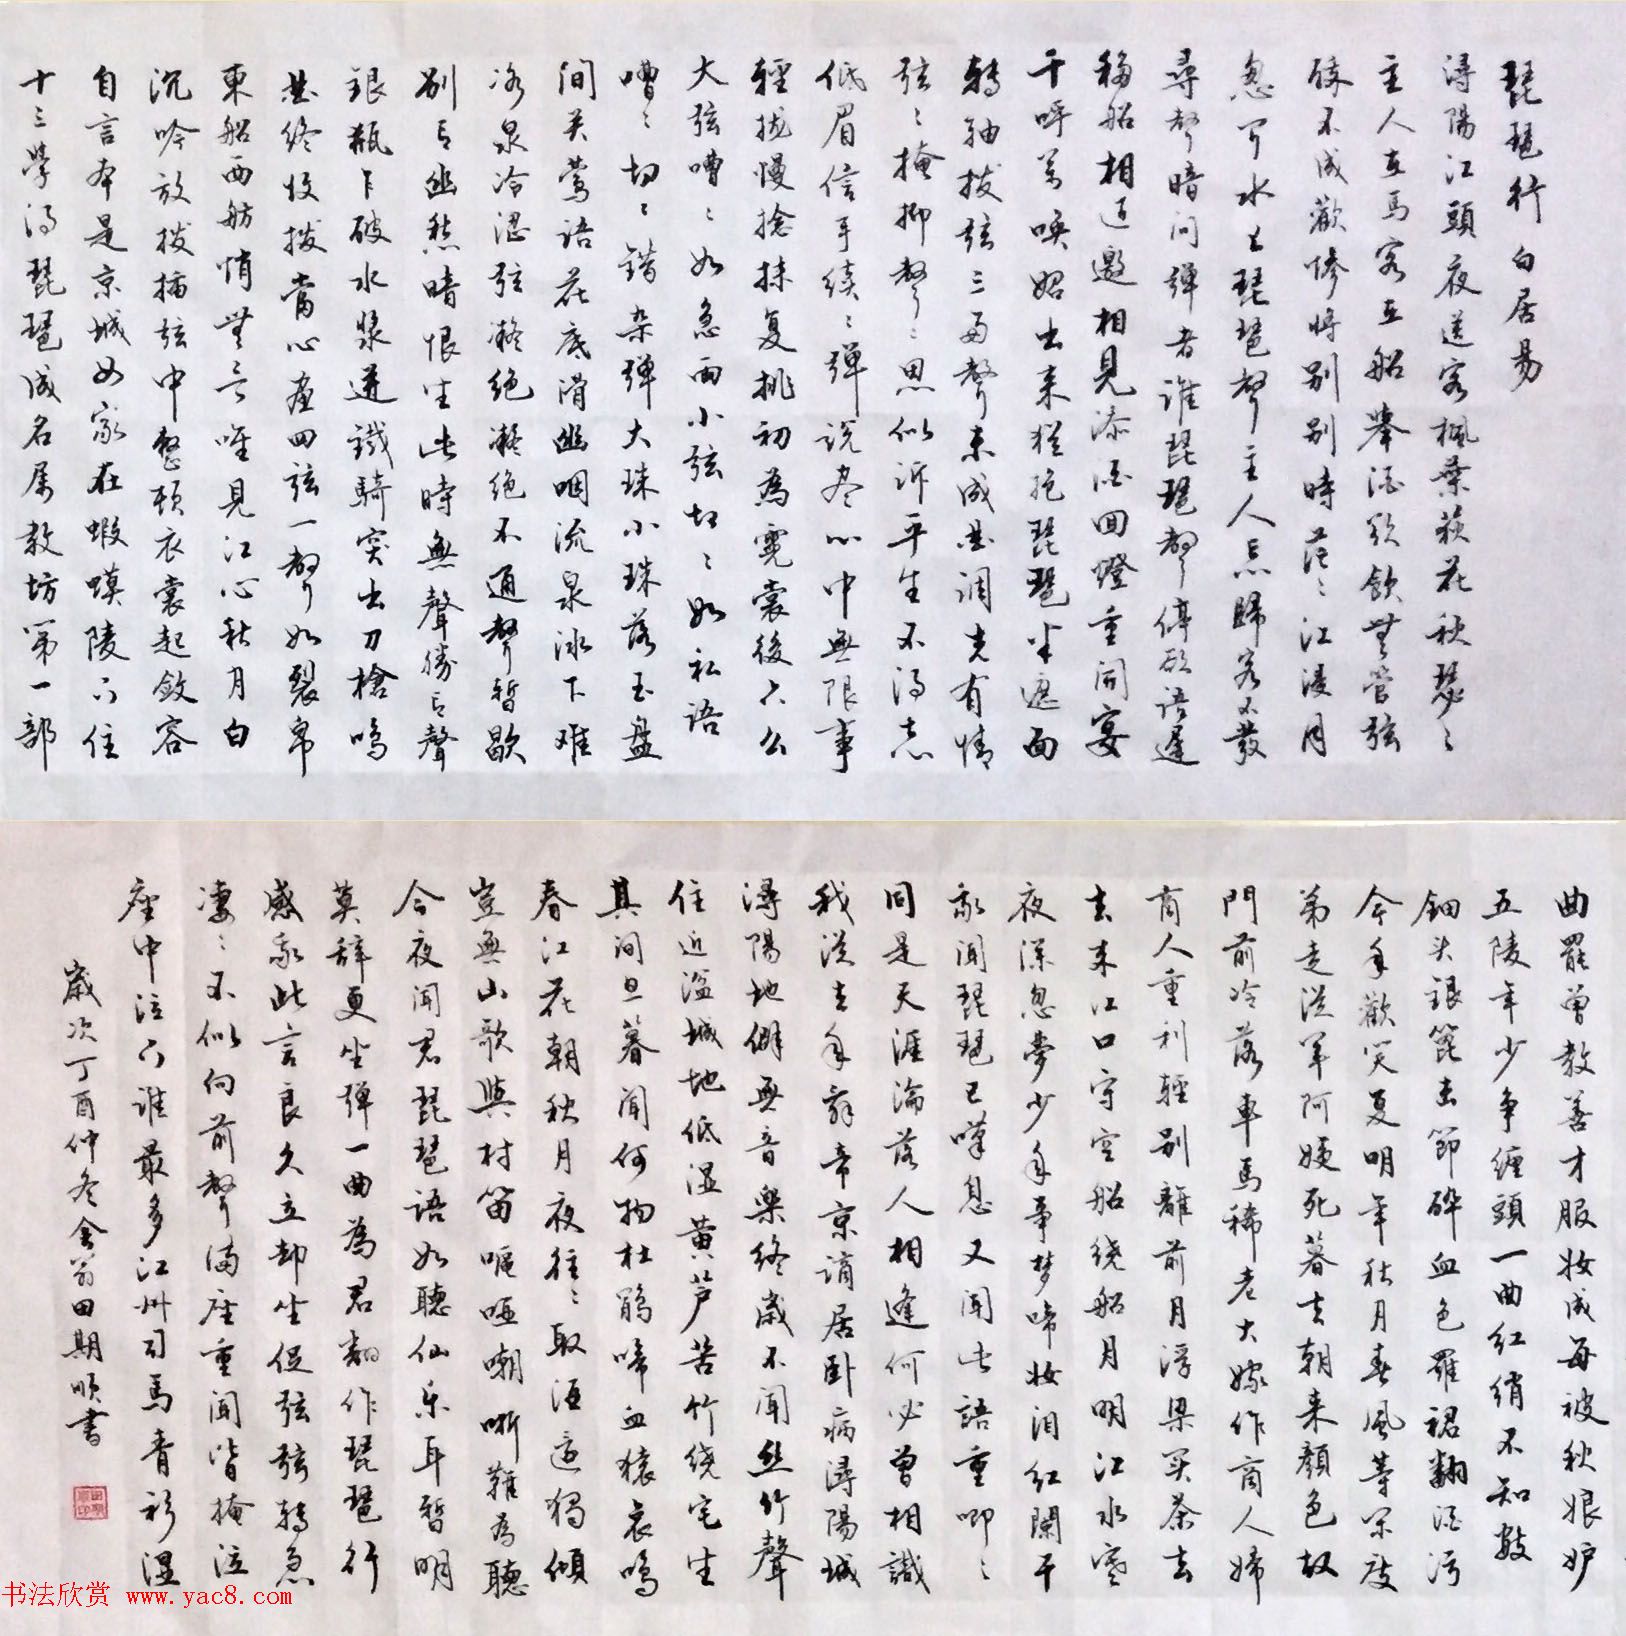 琵琶行 白居易
潯陽江頭夜送客楓葉荻花秋瑟〻
主人下馬客在船舉酒欲飲無管弦
醉不成歡慘將別別時茫〻江浸月
忽聞水上琵琶聲主人忘歸客不發
尋聲暗问彈者誰琵琶聲停欲语遲
移船相近邀相見添酒回燈重開宴
千呼萬喚始出来猶抱琵琶半遮面
轉軸拨弦三两聲未成曲调先有情
弦〻掩抑聲〻思似诉平生不得志
低眉信手续〻弹说尽心中無限事
輕拢慢捻抹复挑初為霓裳後六幺
大弦嘈〻如急雨小弦切〻如私语
嘈〻切〻错杂弹大珠小珠落玉盘
间关莺语花底滑幽咽流泉冰下难
冰泉冷涩弦凝绝凝绝不通聲暂歇
别有幽愁暗恨生此時無聲勝有聲
银瓶乍破水浆迸鐵騎突出刀槍鸣
曲终收拨當心畫四弦一聲如裂帛
東船西舫悄無言唯見江心秋月白
沉吟放拨插弦中整顿衣裳起斂容
自言本是京城女家在蝦蟆陵下住
十三學得琵琶成名属教坊第一部
曲罷曾教善才服妆成每被秋娘妒
五陵年少争缠頭一曲红绡不知数
钿头银篦击節碎血色羅裙翻酒污
今年歡笑复明年秋月春風等闲度
弟走從军阿姨死暮去朝来顏色故
門前冷落車馬稀老大嫁作商人婦
商人重利輕别離前月浮梁买茶去
去来江口守空船绕船月明江水寒
夜深忽夢少年事梦啼妆泪红闌干
我闻琵琶已嘆息又闻此語重唧〻
同是天涯淪落人相逢何必曾相識
我從去年辞帝京謫居卧病潯陽城
潯陽地僻無音樂终歲不闻丝竹聲
住近湓城地低湿黄芦苦竹绕宅生
其间旦暮闻何物杜鹃啼血猿哀鸣
春江花朝秋月夜往〻取酒還獨傾
豈無山歌與村笛嘔哑嘲哳難為聽
今夜闻君琵琶語如聽仙乐耳暂明
莫辞更坐弹一曲為君翻作琵琶行
感我此言良久立却坐促弦弦轉急
凄〻不似向前聲满座重闻皆掩泣
座中泣下谁最多江州司馬青衫湿
歲次丁酉仲冬 翁田期顺書
书法欣赏 www.yac8.com